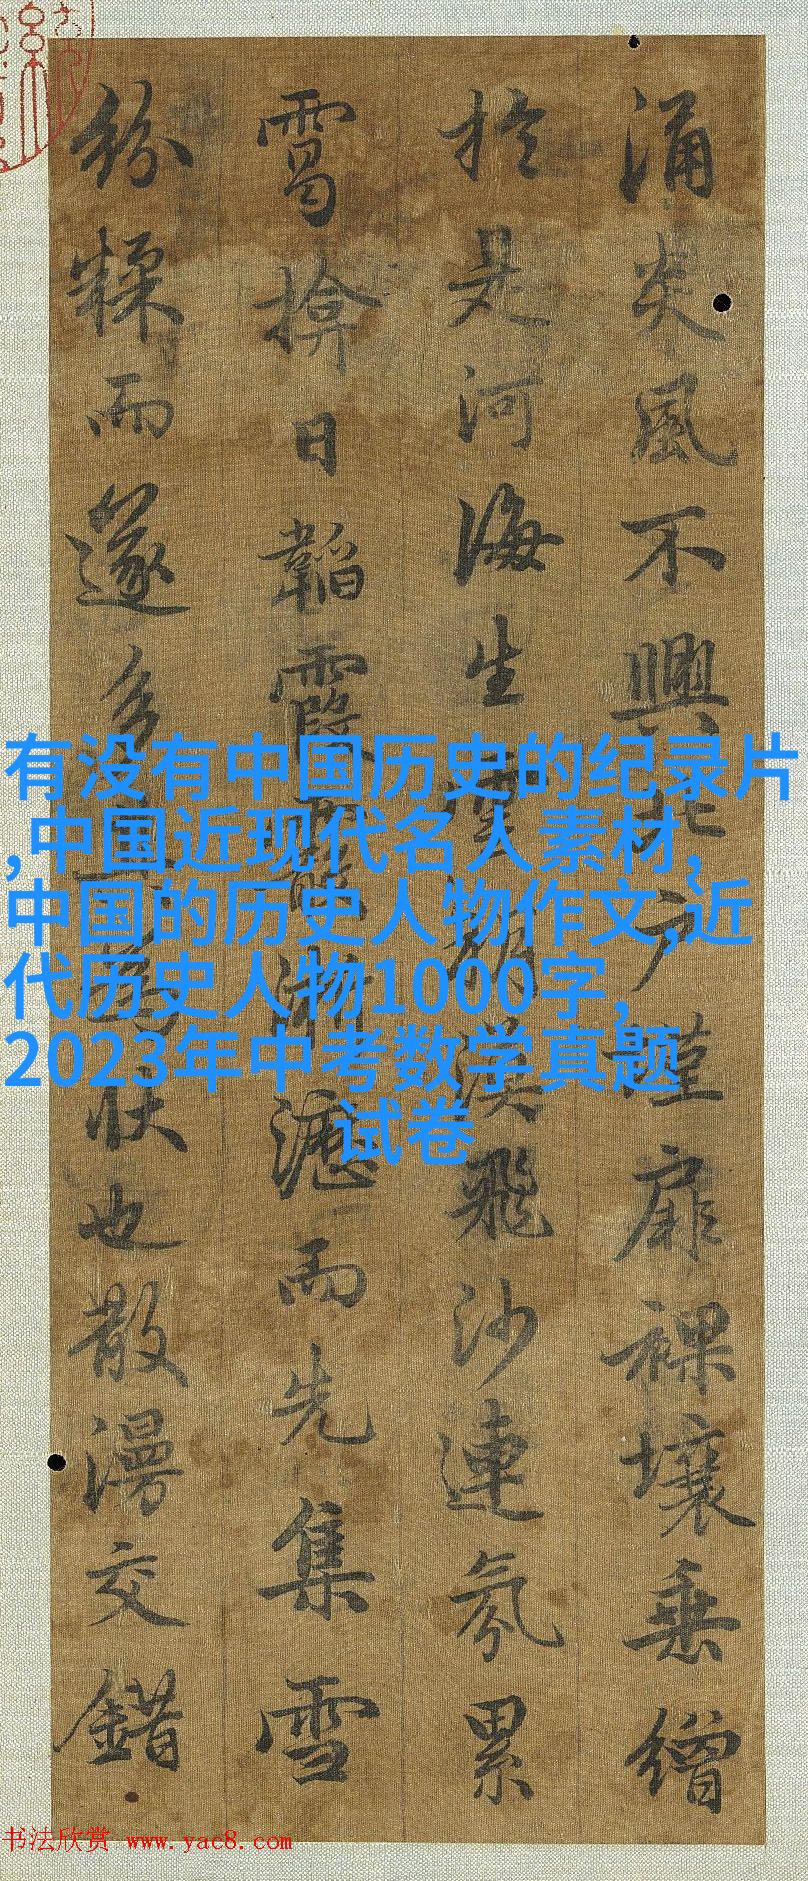 涌炎風不興北户墐扉裸壤垂繒
於是河海生雲朔漠飛沙連氛累
靄揜日韜霞霰淅瀝而先集雪
紛糅而遂多其為狀也散漫交錯
有没有中国历史的纪录片
,中国近现代名人素材,
中国的历史人物作文,近
代历史人物1000字,
2023年中考数学真题
试卷
书法欣赏 www.yac8.com